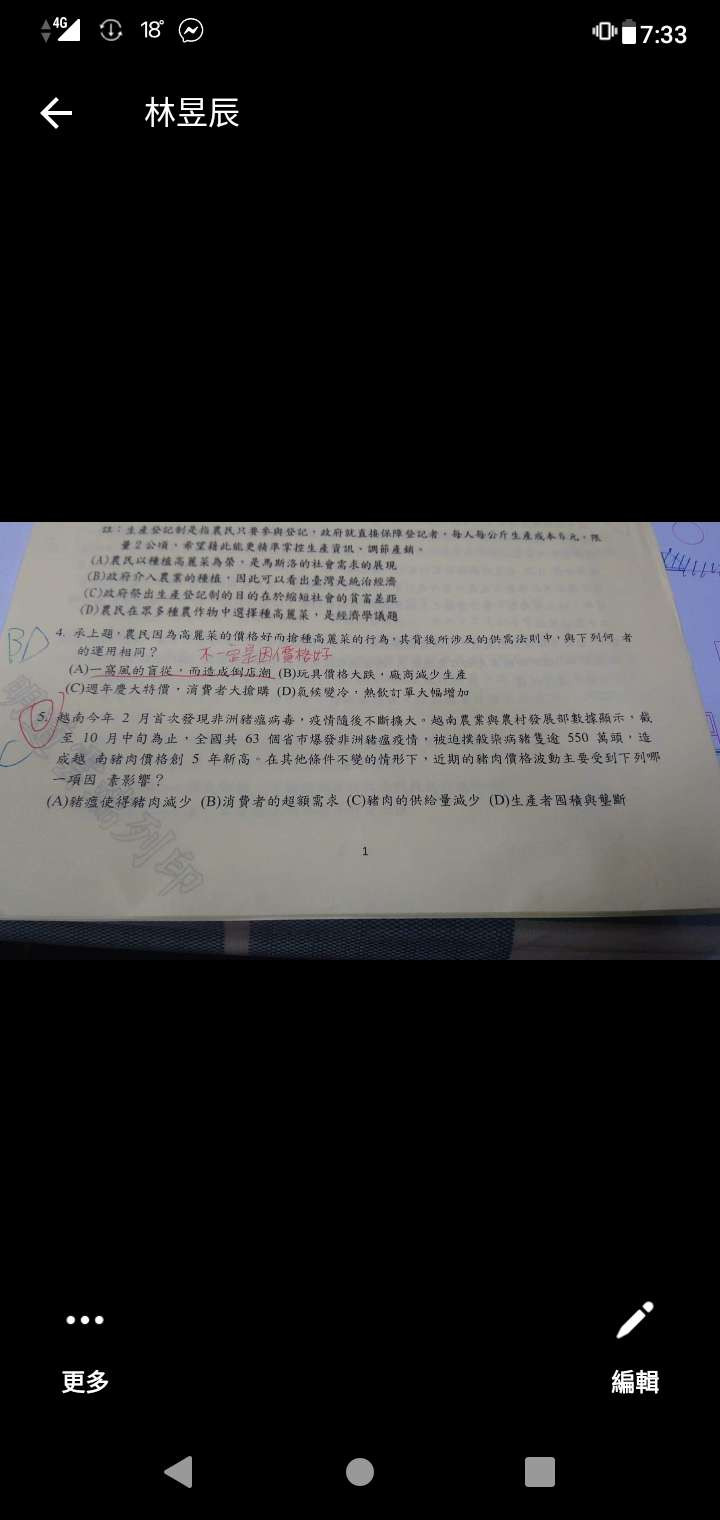 4G 18° 7:33
林昱辰
註：生產登記制是指農民只要參與登記，政府就直接保障登記者，每人每公斤生產成本5元，限
量2公頃、希望藉此能更精準掌控生產資訊、調節產銷。
(A)農民以種植高麗菜為榮，是馬斯洛的社會需求的展現
(B)政府介入農業的種植，因此可以看出臺灣是統治經濟
(C)政府祭出生產登記制的目的在於縮短社會的貧富差距
(D)農民在眾多種農作物中選擇種高麗菜，是經濟學議題
BD 4. 承上題，農民因為高麗菜的價格好而搶種高麗菜的行為，其背後所涉及的供需法則中，與下列何 者
的運用相同？ 不一定是因價格好
(A)一窩風的盲從，而造成倒店潮 (B)玩具價格大跌，廠商減少生產
(C)週年慶大特價，消費者大搶購 (D)氣候變冷，熱飲訂單大幅增加
5. 越南今年 2 月首次發現非洲豬瘟病毒，疫情隨後不斷擴大。越南農業與農村發展部數據顯示，截
至 10 月中旬為止，全國共 63 個省市爆發非洲豬瘟疫情，被迫撲殺染病豬隻逾 550 萬頭，造
成越 南豬肉價格創 5 年新高。在其他條件不變的情形下，近期的豬肉價格波動主要受到下列哪
一項因 素影響？
(A)豬瘟使得豬肉減少 (B)消費者的超額需求 (C)豬肉的供給量減少 (D)生產者囤積與壟斷
列印
1
更多 編輯